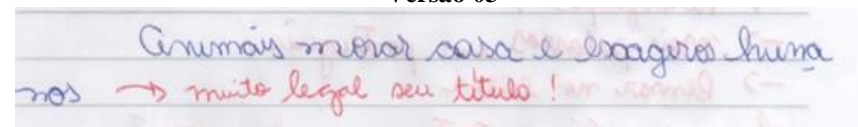 Versão 03
Animais morar casa e exageros huma
nos → muito legal seu título!